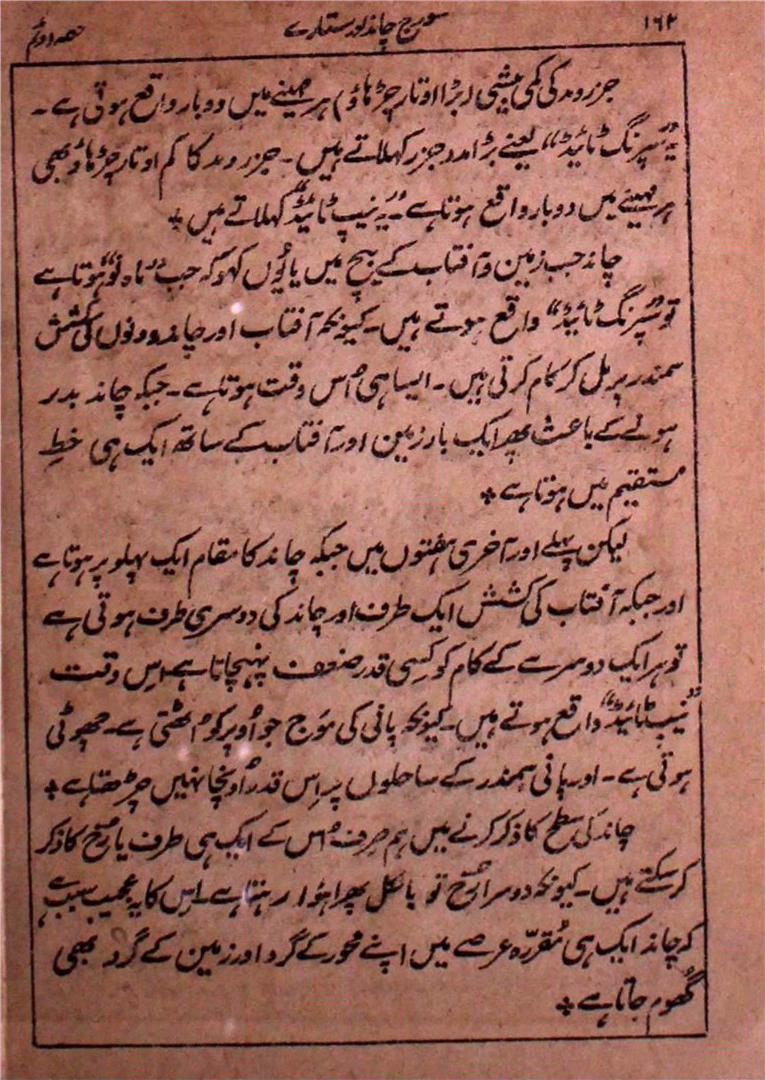 ۱۶۲ سورج چاند اور ستارے حصہ دوم
جزرومد کی کمی بیشی (بڑا اوتار چڑھاؤ) ہر مہینے میں دو بار واقع ہوتی ہے۔
یہ "سپرنگ ٹائیڈ" یعنے بڑا مدد جزر کہلاتے ہیں۔ جزرومد کا کم اوتار چڑھاؤ بھی
ہر مہینے میں دوبار واقع ہوتا ہے۔ یہ "نیپ ٹائیڈ" کہلاتے ہیں ٭
چاند جب زمین و آفتاب کے بیچ میں یا یُوں کہو کہ جب "ماہ نَو" ہوتا ہے
تو "سپرنگ ٹائیڈ" واقع ہوتے ہیں۔ کیونکہ آفتاب اور چاند دونوں کی کشش
سمندر پر مل کر کام کرتی ہیں۔ ایسا ہی اُس وقت ہوتا ہے۔ جبکہ چاند بدر
ہونے کے باعث پھر ایک بار زمین اور آفتاب کے ساتھ ایک ہی خطِ
مستقیم میں ہوتا ہے ٭
لیکن پہلے اور آخری ہفتوں میں جبکہ چاند کا مقام ایک پہلو پر ہوتا ہے
اور جبکہ آفتاب کی کشش ایک طرف اور چاند کی دوسری طرف ہوتی ہے
تو ہر ایک دوسرے کے کام کو کِسی قدر ضعف پہنچاتا ہے۔ اس وقت
"نیپ ٹائیڈ" واقع ہوتے ہیں۔ کیونکہ پانی کی مَوج جو اُوپر کو اُٹھتی ہے۔ چھوٹی
ہوتی ہے۔ اور پانی سمندر کے ساحلوں پر اِس قدر اُونچا نہیں چڑھتا ہے ٭
چاند کی سطح کا ذکر کرنے میں ہم صِرف اُس کے ایک ہی طرف یا رُخ کا ذکر
کر سکتے ہیں۔ کیونکہ دوسرا رُخ تو بالکل پھرا ہُوا رہتا ہے۔ اِس کا یہ عجیب سبب ہے
کہ چاند ایک ہی مُقرّرہ عرصے میں اپنے محور کے گرد اور زمین کے گرد بھی
گُھوم جاتا ہے ٭